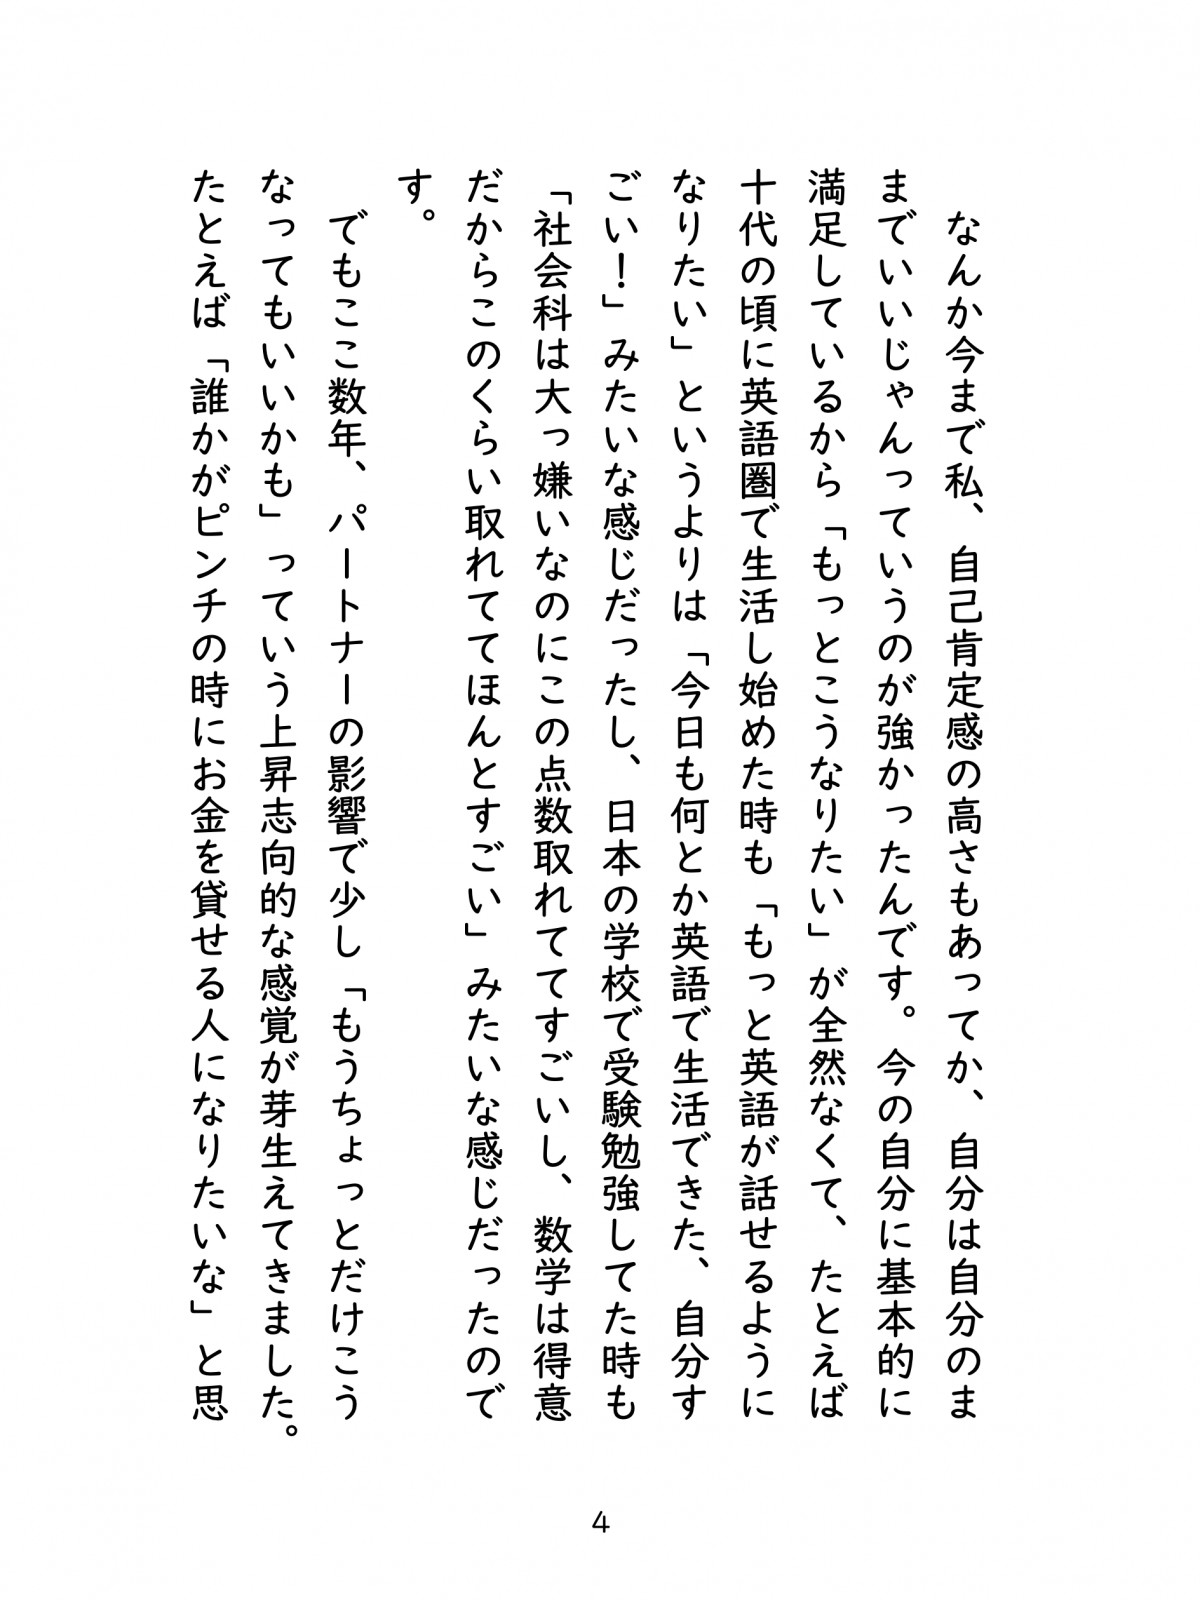 なんか今まで私、自己肯定感の高さもあってか、自分は自分のま
までいいじゃんっていうのが強かったんです。今の自分に基本的に
満足しているから「もっとこうなりたい」が全然なくて、たとえば
十代の頃に英語圏で生活し始めた時も「もっと英語が話せるように
なりたい」というよりは「今日も何とか英語で生活できた、自分す
ごい！」みたいな感じだったし、日本の学校で受験勉強してた時も
「社会科は大っ嫌いなのにこの点数取れてすごいし、数学は得意
だからこのくらい取れててほんとすごい」みたいな感じだったので
す。
でもここ数年、パートナーの影響で少し「もうちょっとだけこう
なってもいいかも」っていう上昇志向的な感覚が芽生えてきました。
たとえば「誰かがピンチの時にお金を貸せる人になりたいな」と思
4